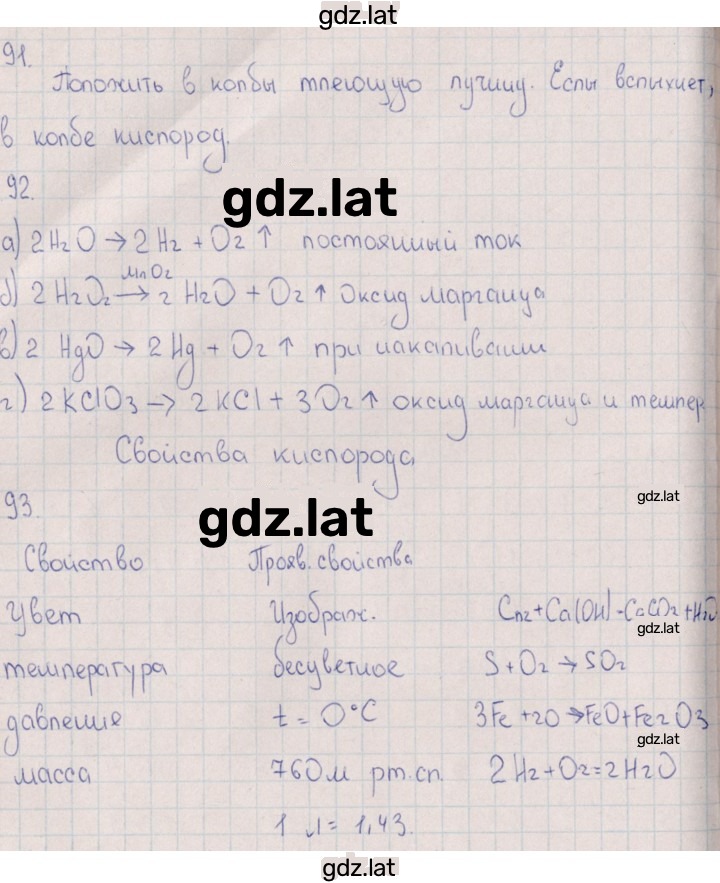 gdz.lat
91.
Положить в колбы тлеющую лучину. Еслы вспыхнет,
в колбе кислород.
92.
gdz.lat
а) 2H2O → 2H2 + O2 ↑ постоянный ток
MnO2
б) 2H2O2 → 2 H2O + O2 ↑ оксид марганца
в) 2 HgO → 2Hg + O2 ↑ при накаливании
г) 2KClO3 → 2KCl + 3O2 ↑ оксид марганца и темпер
Свойства кислорода
93.
gdz.lat
gdz.lat
Свойство Прояв. свойства
цвет Изображ. Cn2+Ca(OH)-CaCO2+H2O
gdz.lat
температура бесцветное S+O2 → SO2
давление t = 0°C 3Fe +2O → FeO+Fe2O3
gdz.lat
масса 760м рт.сп. 2H2+O2=2H2O
1 л = 1,43.
gdz.lat